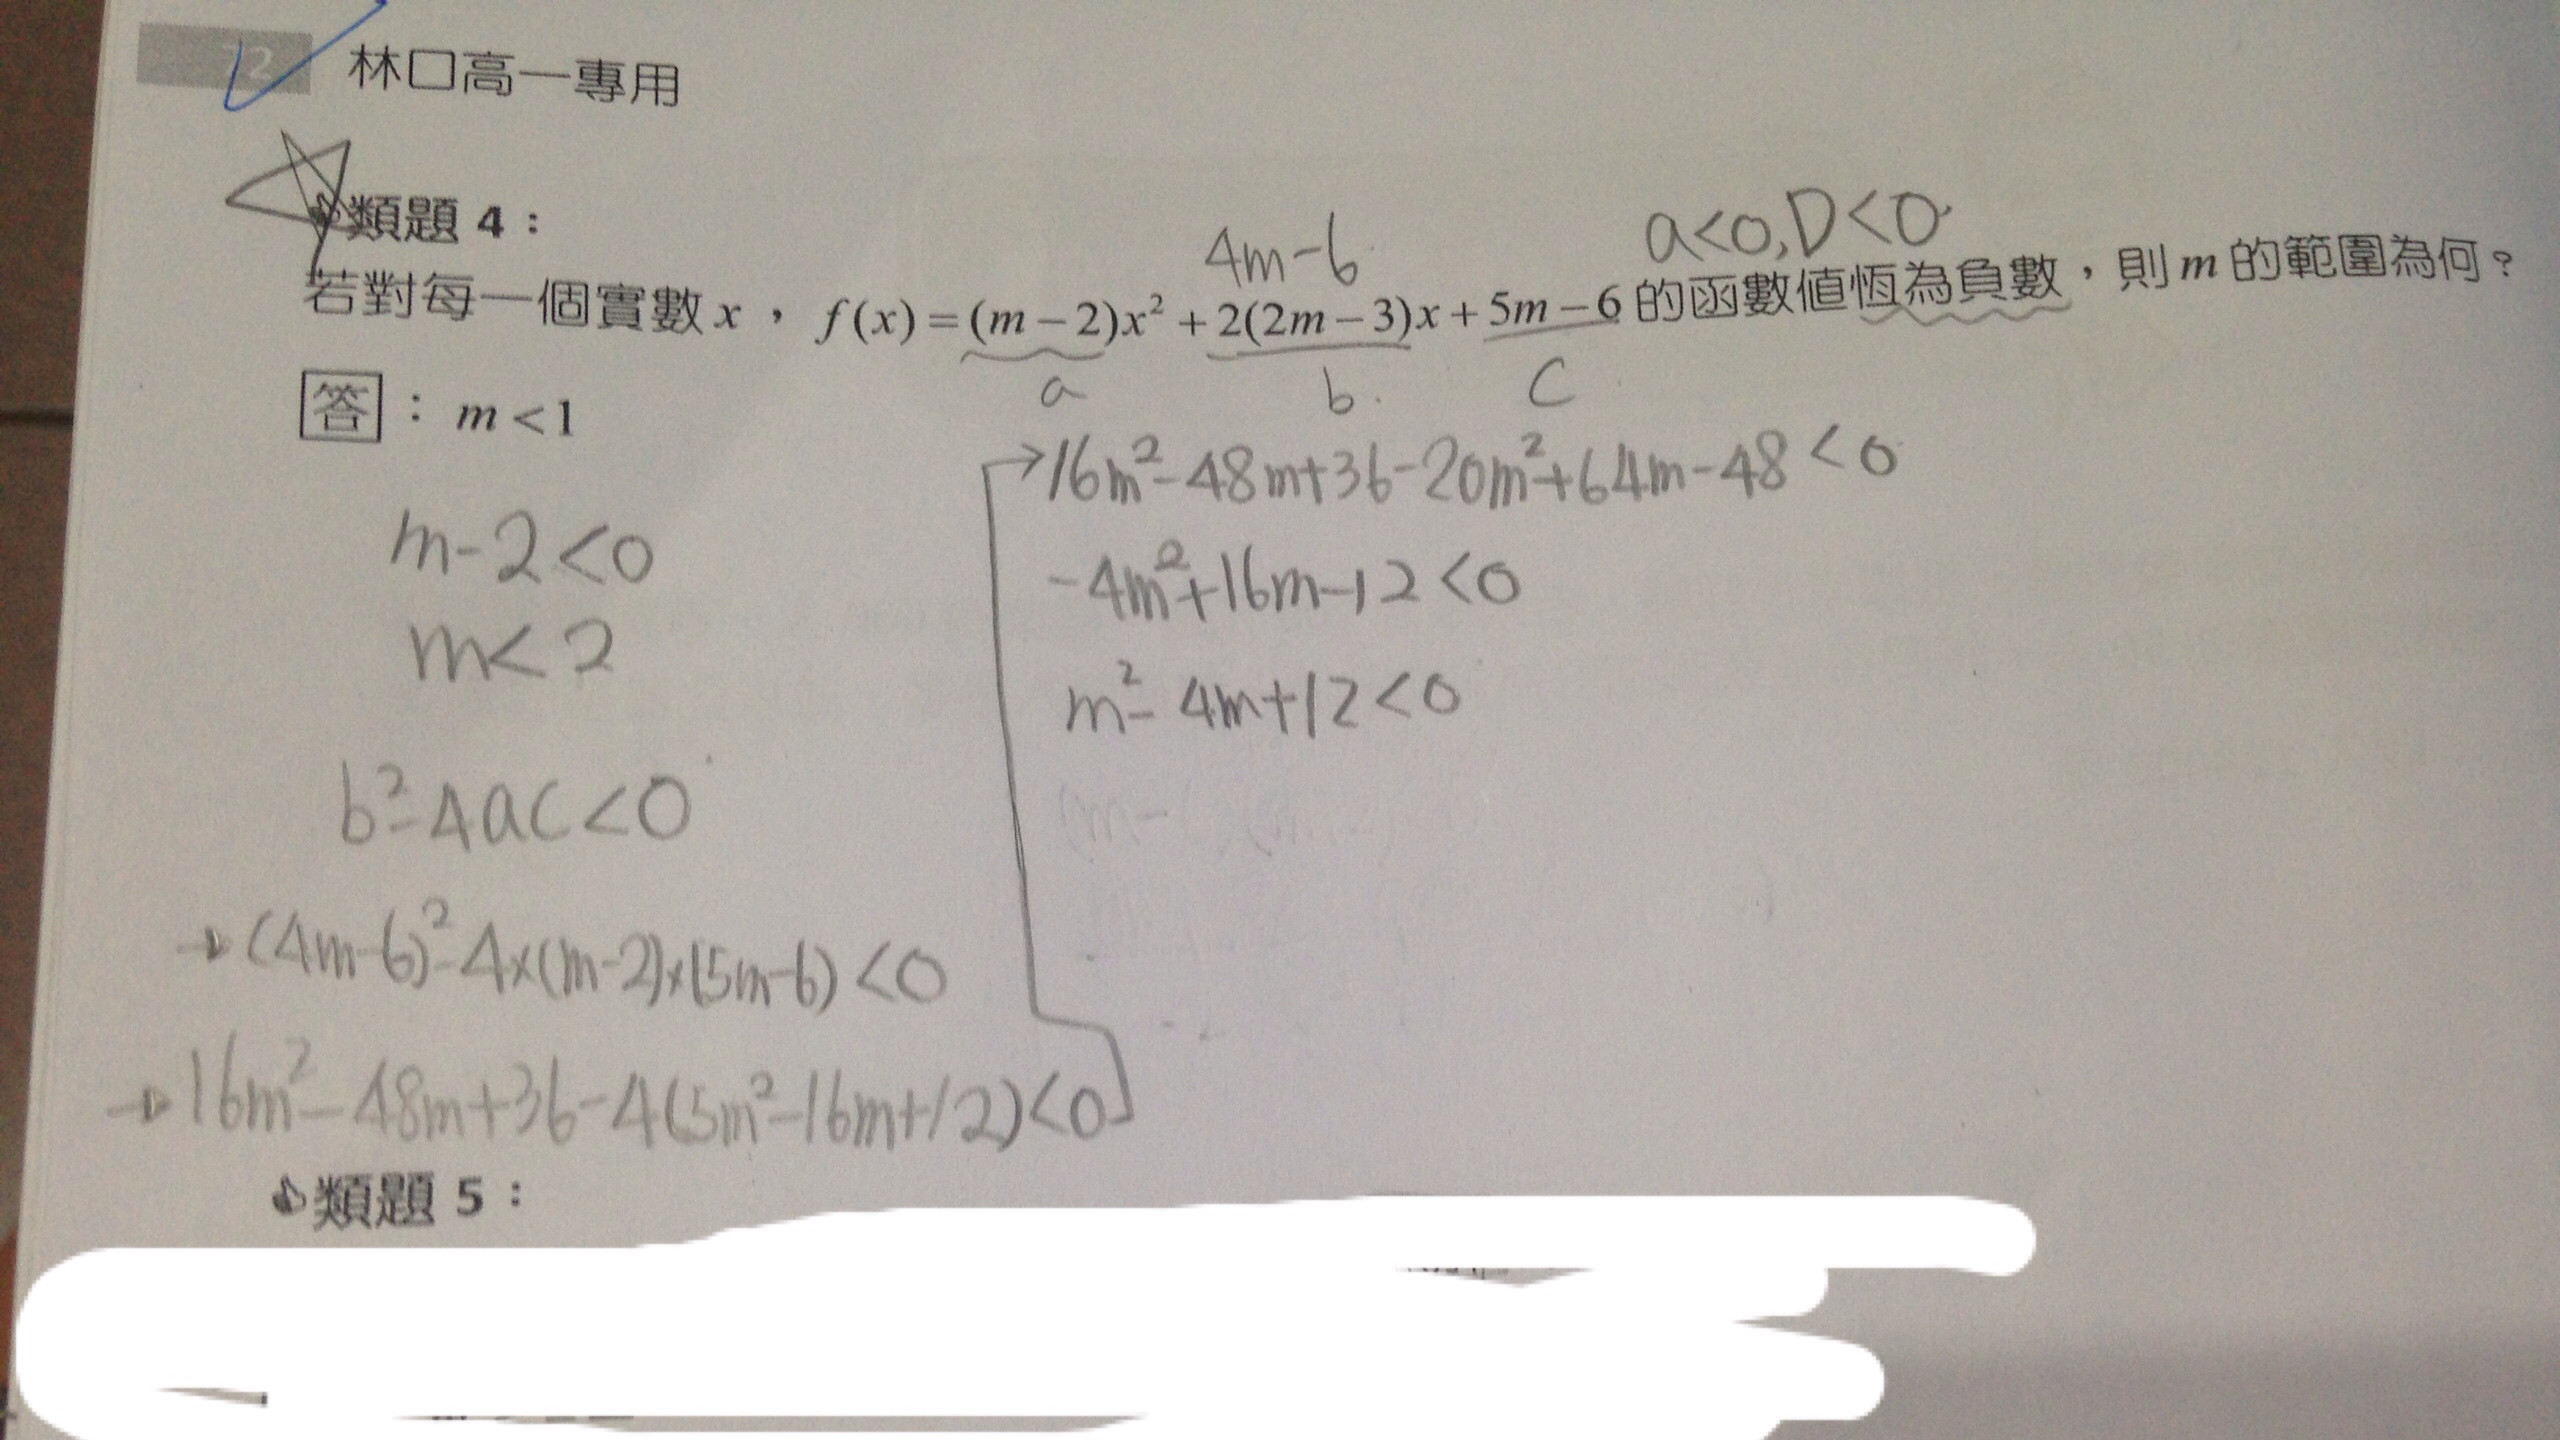 72 林口高一專用
類題 4：
4m-6
a<0, D<0
若對每一個實數 x，f(x)=(m-2)x²+2(2m-3)x+5m-6 的函數值恆為負數，則 m 的範圍為何？
a b c
答：m<1
m-2<0
m<2
b²-4ac<0
→(4m-6)²-4×(m-2)×(5m-6)<0
→16m²-48m+36-4(5m²-16m+12)<0
→16m²-48m+36-20m²+64m-48<0
-4m²+16m-12<0
m²-4m+12<0
類題 5：